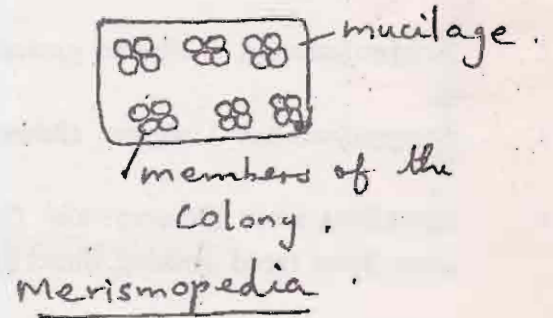 mucilage.
members of the
Colony.
Merismopedia.